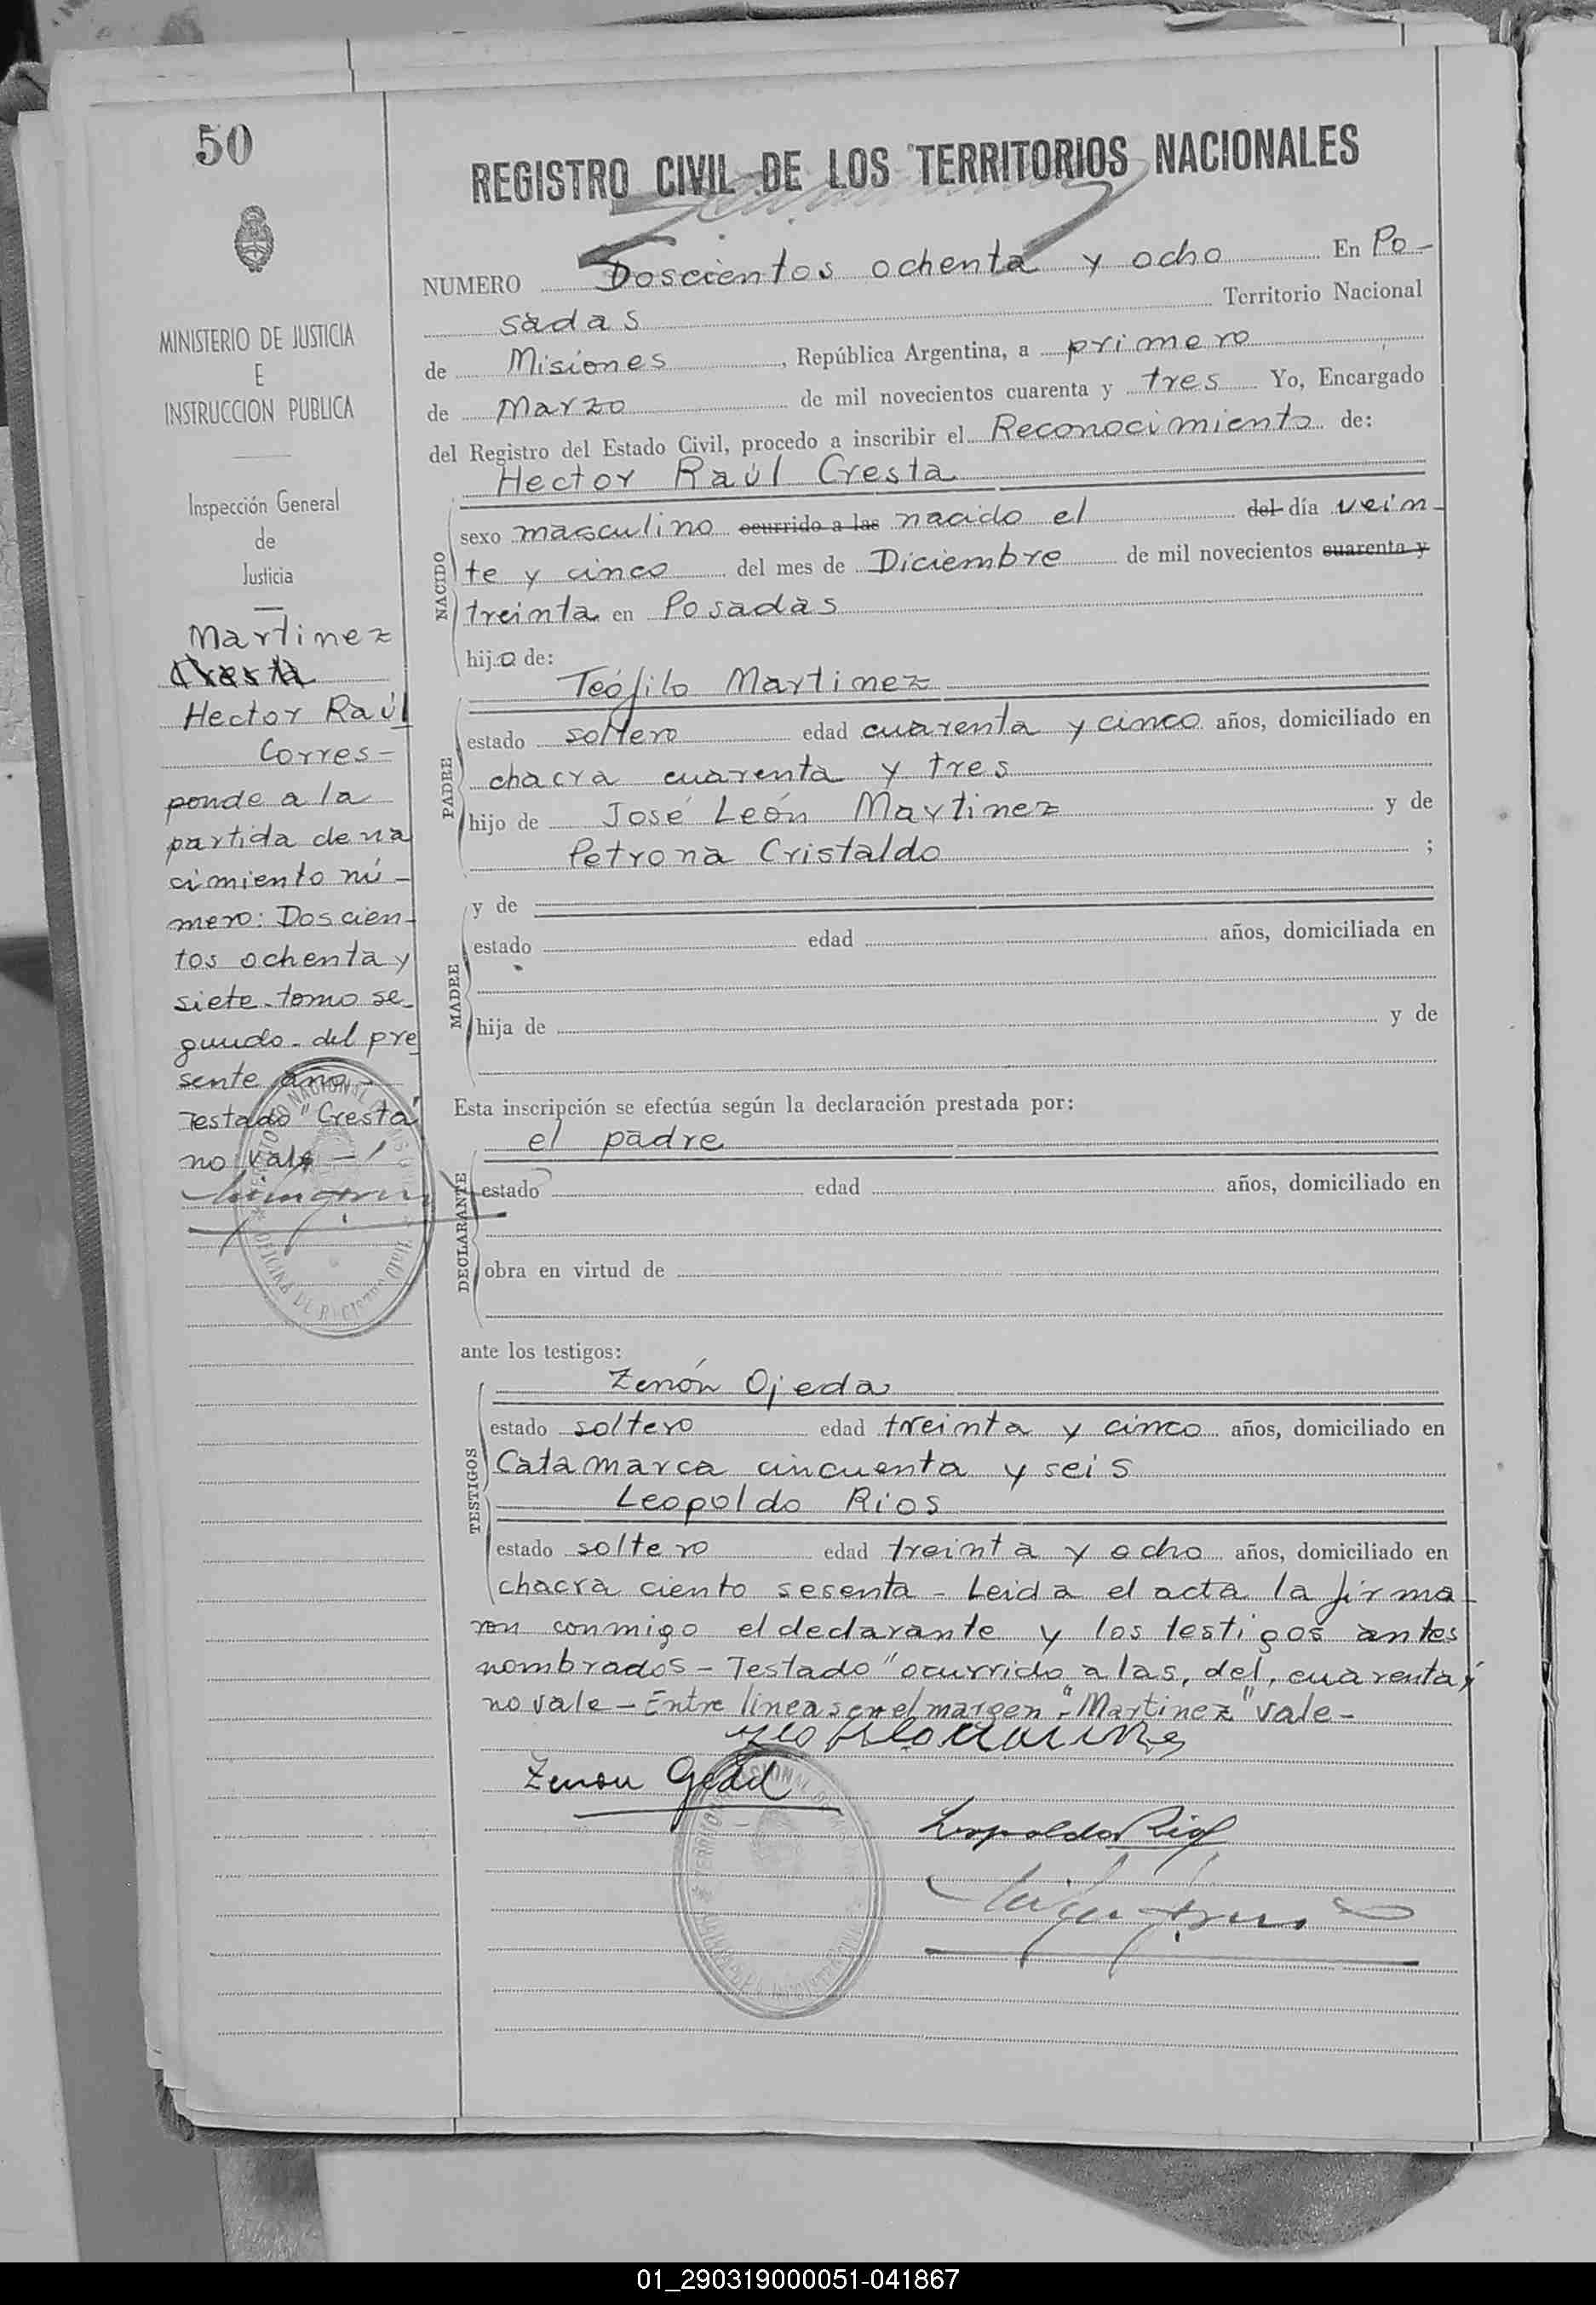 50
MINISTERIO DE JUSTICIA
E
INSTRUCCION PUBLICA
Inspección General
de
Justicia
Martinez
Cresta
Hector Raúl
Corres-
ponde a la
partida de na
cimiento nú-
mero: Doscien-
tos ochenta y
siete-tomo se-
gundo-del pre
sente año-
Testado "Cresta"
no vale-
REGISTRO CIVIL DE LOS TERRITORIOS NACIONALES
NUMERO Doscientos ochenta y ocho En Po-
sadas Territorio Nacional
de Misiones, República Argentina, a primero
de Marzo de mil novecientos cuarenta y tres Yo, Encargado
del Registro del Estado Civil, procedo a inscribir el Reconocimiento de:
Hector Raúl Cresta
NACIDO
sexo masculino ocurrido a las nacido el del día vein-
te y cinco del mes de Diciembre de mil novecientos cuarenta y
treinta en Posadas
hijo de:
Teófilo Martinez
PADRE
estado soltero edad cuarenta y cinco años, domiciliado en
chacra cuarenta y tres
hijo de José León Martinez y de
Petrona Cristaldo ;
y de
MADRE
estado edad años, domiciliada en
hija de y de
Esta inscripción se efectúa según la declaración prestada por:
el padre
DECLARANTE
estado edad años, domiciliado en
obra en virtud de
ante los testigos:
Zenón Ojeda
TESTIGOS
estado soltero edad treinta y cinco años, domiciliado en
Catamarca cincuenta y seis
Leopoldo Rios
estado soltero edad treinta y ocho años, domiciliado en
chacra ciento sesenta - Leida el acta la firma-
ron conmigo el declarante y los testigos antes
nombrados - Testado "ocurrido a las, del, cuarenta y"
no vale - Entre lineas en el margen - "Martinez" vale -
Zenon
Leopoldo Rios
01_290319000051-041867